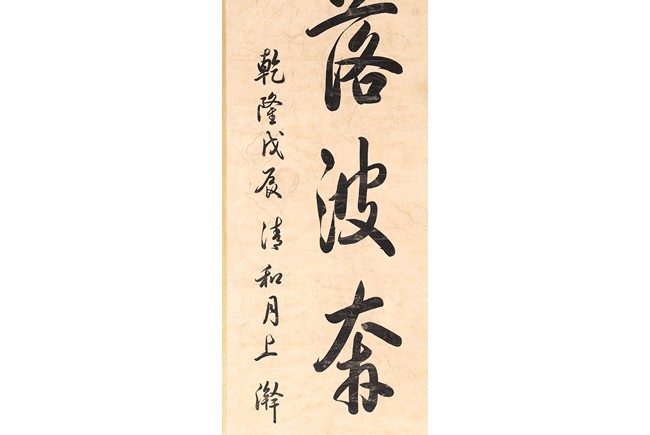 落波奔
乾隆戊辰清和月上澣